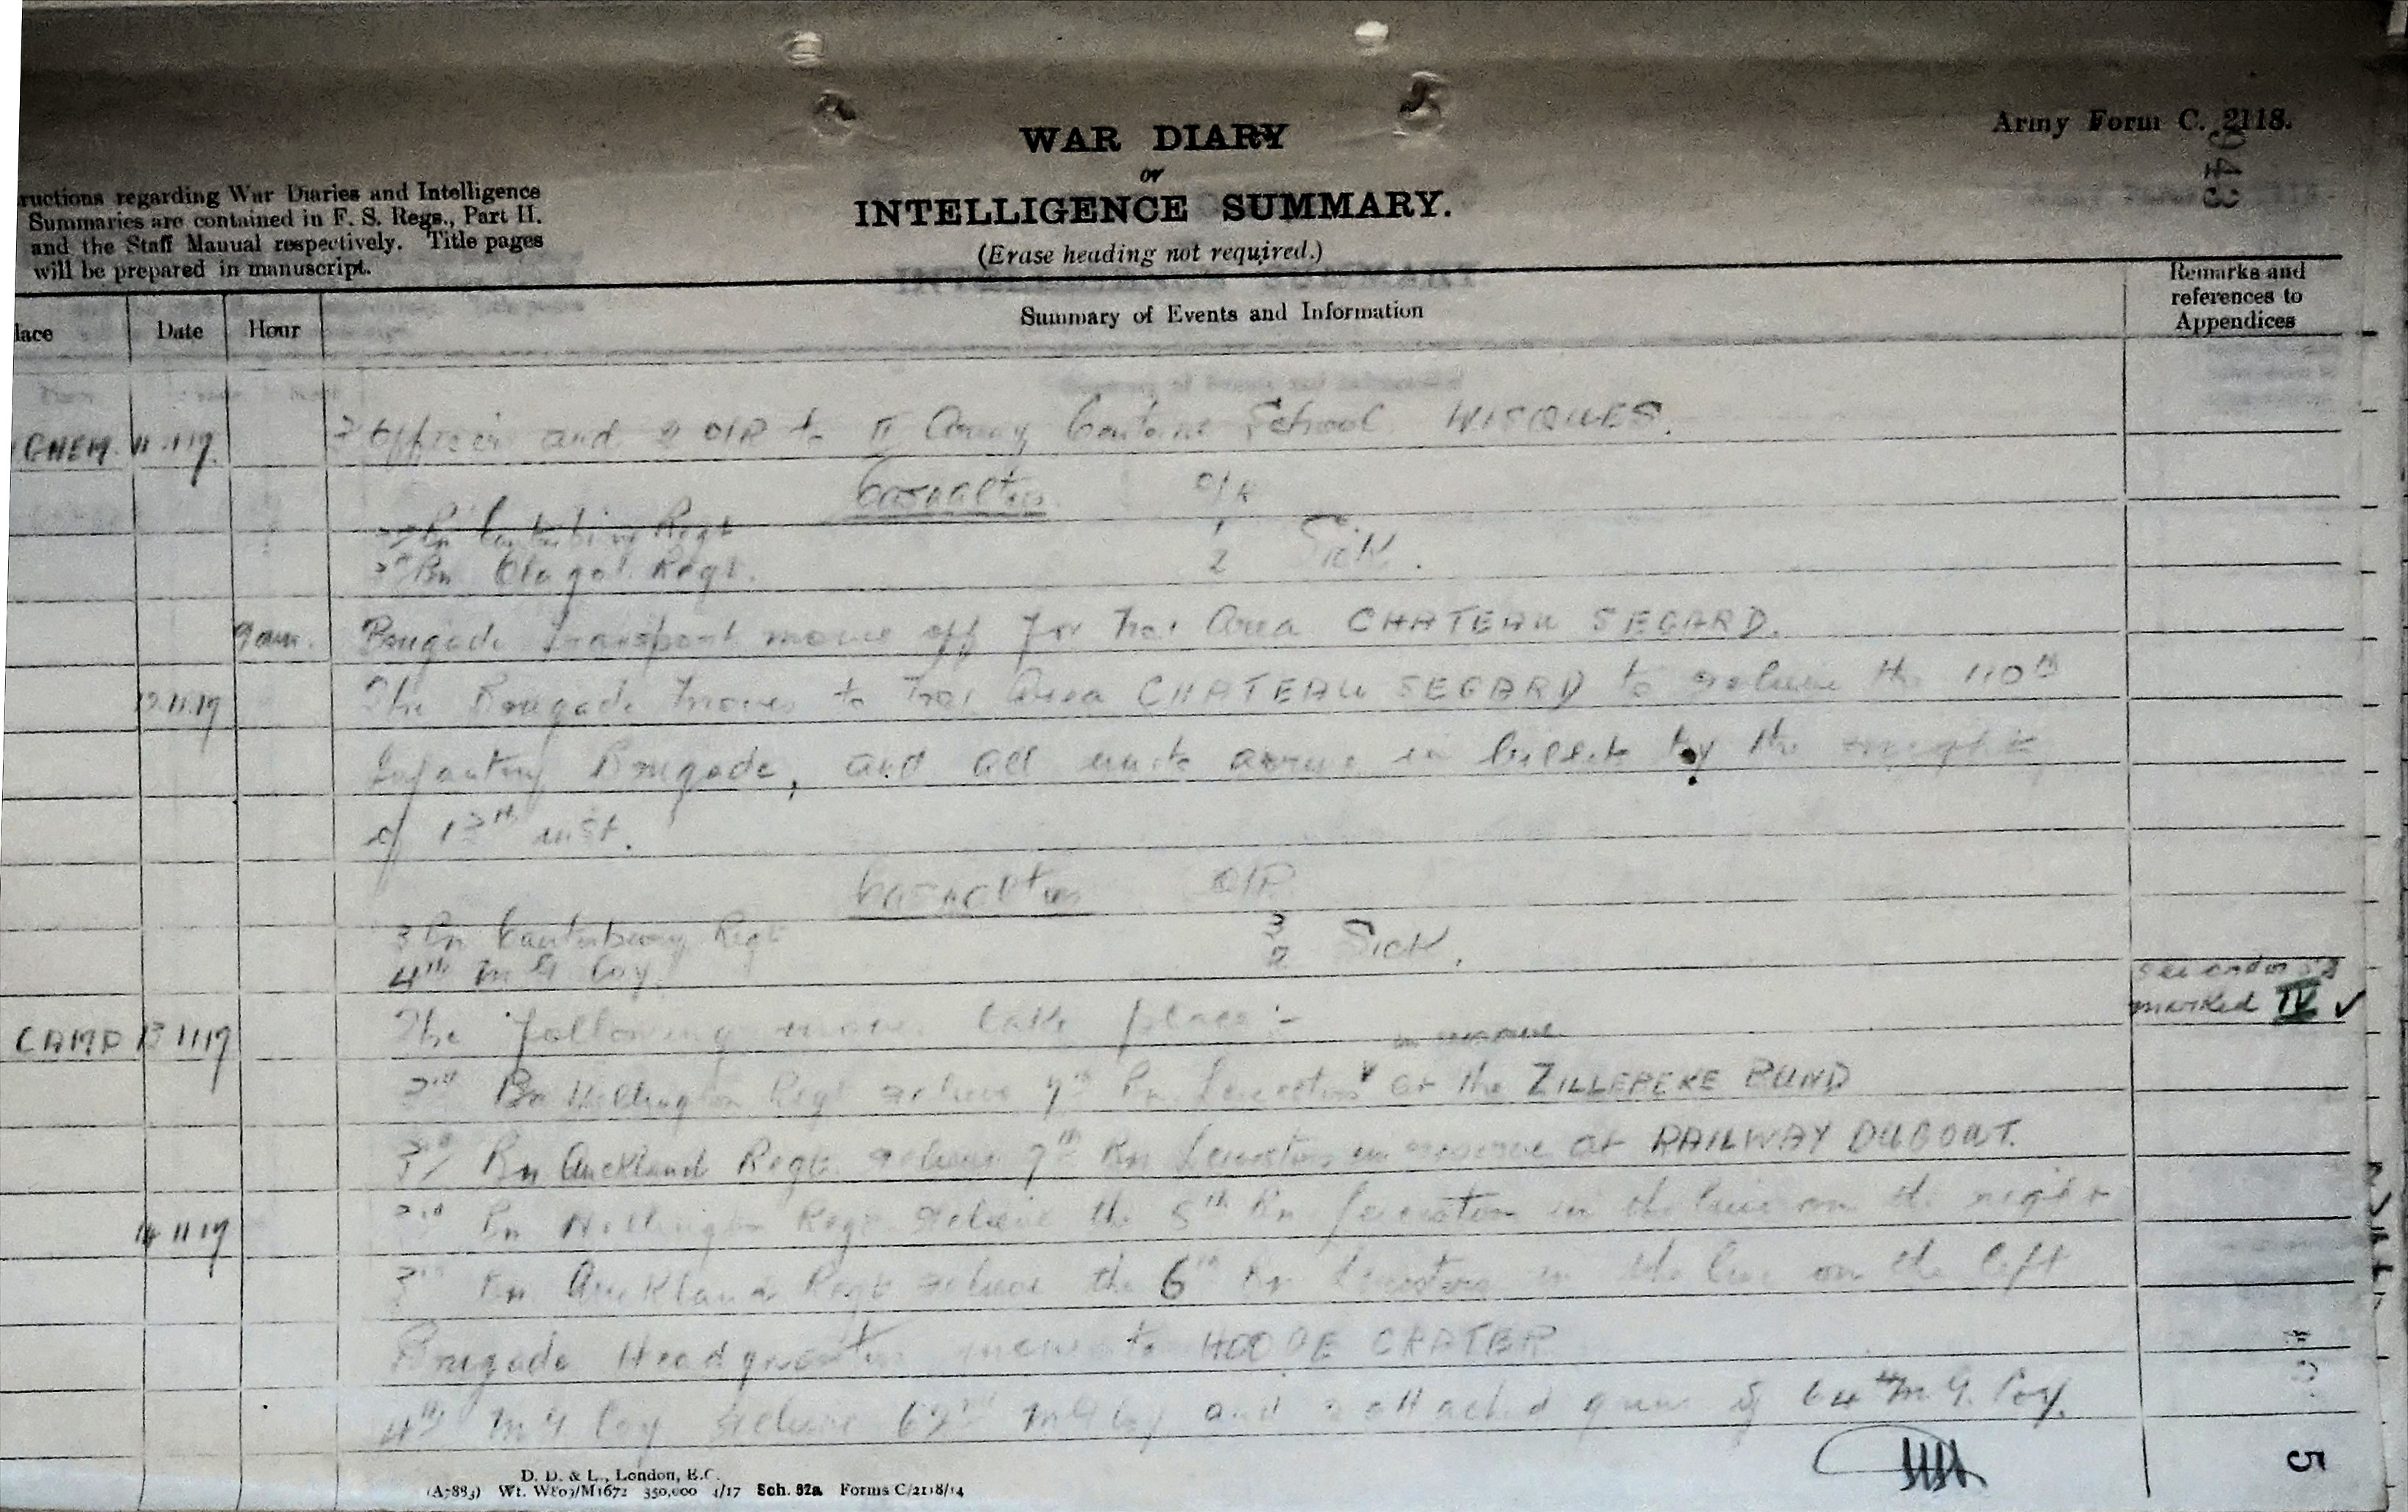 Army Form C. 2118.
WAR DIARY
or
INTELLIGENCE SUMMARY.
(Erase heading not required.)
ructions regarding War Diaries and Intelligence
Summaries are contained in F. S. Regs., Part II.
and the Staff Manual respectively. Title pages
will be prepared in manuscript.
lace Date Hour Summary of Events and Information Remarks and references to Appendices
GHEM. 11.11.17 Officer and 2 O/R to II Army Canteen School WISQUES.
Casualties O/R
3rd Bn Canterbury Regt 1
3rd Bn Otago Regt. 2 Sick.
9am. Brigade transport move off for Area CHATEAU SEGARD.
12.11.17 The Brigade moves to Area CHATEAU SEGARD to relieve the 110th
Infantry Brigade, and all units arrive in billets by the night
of 13th inst.
Casualties O/R
3 Bn Canterbury Regt 3
4th M G Coy. 2 Sick.
see order
marked IV ✓
CAMP 13 11 17 The following move take place :-
in reserve
3rd Bn Wellington Regt relieve 7th Bn Leicesters at the ZILLEBEKE BUND
3rd Bn Auckland Regt. relieve 9th Bn Leicesters in reserve at RAILWAY DUGOUT.
14 11 17 3rd Bn Wellington Regt relieve the 8th Bn Leicesters in the line on the right
3rd Bn Auckland Regt relieve the 6th Bn Leicesters in the line on the left
Brigade Headquarters move to HOOGE CRATER
4th M G Coy relieve 62nd M G Coy and 2 attached guns of 64th M. G. Coy.
5
D. D. & L., London, E.C.
(A7883) Wt. W809/M1672 350,000 4/17 Sch. 82a Forms C/2118/14